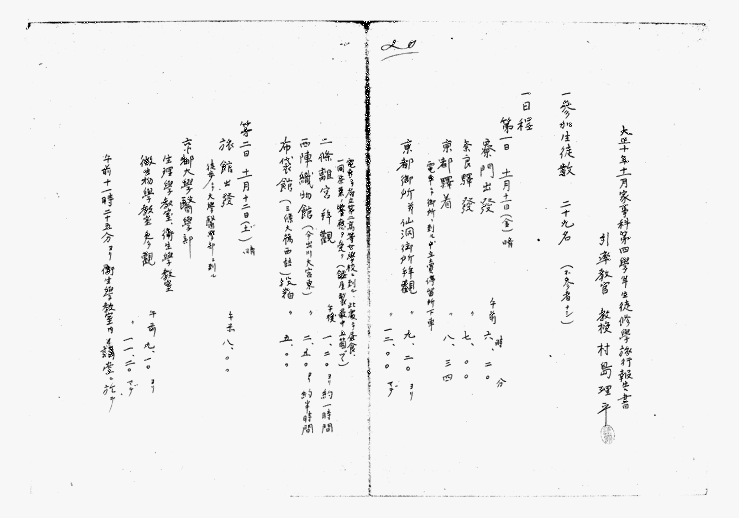 20
大正十年十一月家事科第四學年生徒修學旅行報告書
引率教官 教授 村島理平
一參加生徒數 二十九名 (不參者ナシ)
一日程
第一日 十一月十一日(金) 晴
午前 時 分
寮門出發 六、二〇
奈良驛發 〃 七、〇〇
京都驛着 〃 八、三四
電車ニテ御所ニ到ル中立賣停留所下車
京都御所並仙洞御所拜觀 〃 九、二〇ヨリ
〃 一二、〇〇マデ
電車ニテ府立第一高等女學校ニ到リ此處ニテ晝食、
一同茶菓ノ饗應ヲ受ク
二條離宮拜觀 午後 一、二〇ヨリ約一時間
西陣織物館 (今出川大宮東) 〃 二、五〇ヨリ約半時間
布袋館 (三條大橋西詰) 投宿 〃 五、〇〇
第二日 十一月十二日(土) 晴
旅館出發 午前 八、〇〇
徒歩ニテ大學醫學部ニ到ル
京都大學醫學部
生理學教室、衛生學教室
微生物學教室參觀 午前 九、一〇ヨリ
〃 一一、二〇マデ
午前十一時二十五分ヨリ衛生學教室內講堂ニ於テ